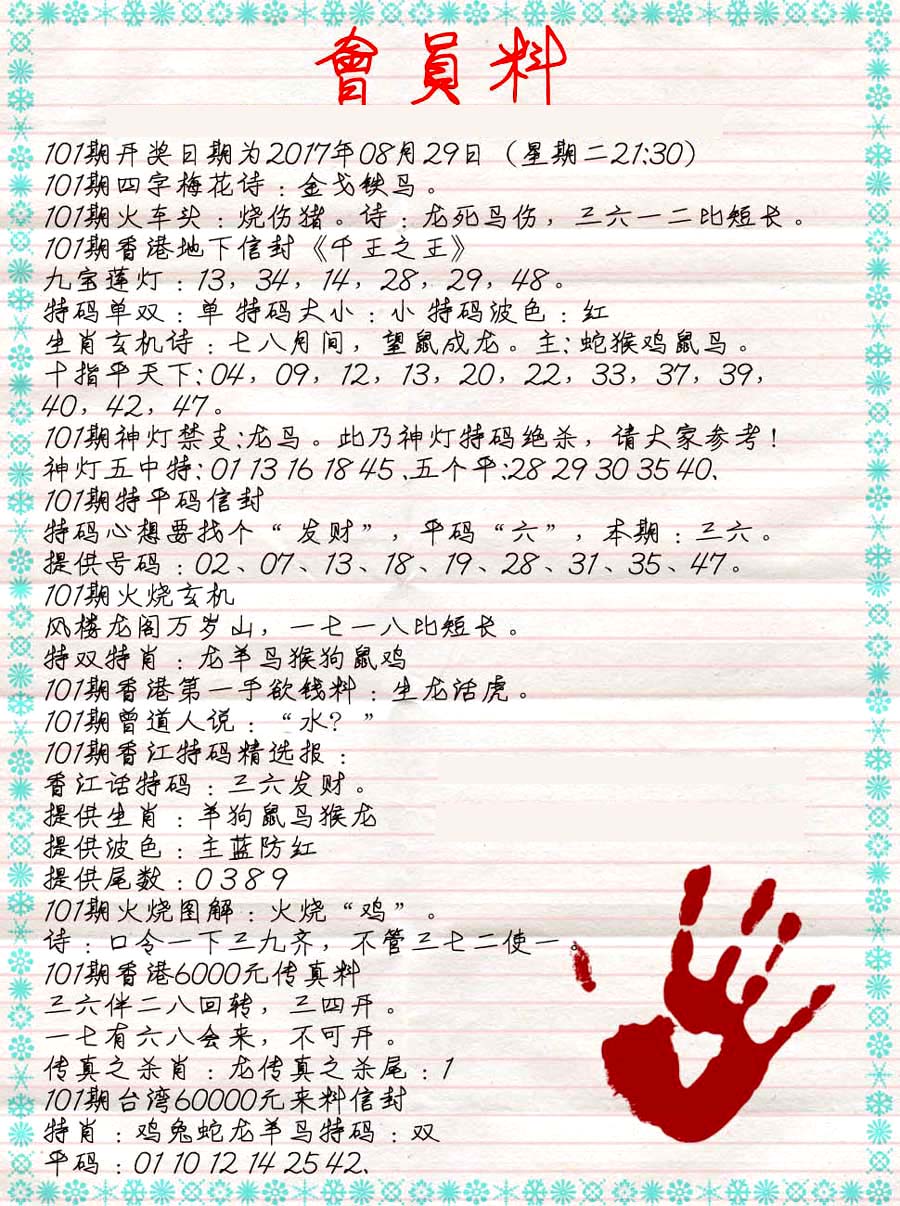 會員料
101期开奖日期为2017年08月29日（星期二21:30）
101期四字梅花诗：金戈铁马。
101期火车头：烧伤猪。诗：龙死马伤，三六一二比短长。
101期香港地下信封《千王之王》
九宝莲灯：13，34，14，28，29，48。
特码单双：单 特码大小：小 特码波色：红
生肖玄机诗：七八月间，望鼠成龙。主:蛇猴鸡鼠马。
十指平天下:04，09，12，13，20，22，33，37，39，
40，42，47。
101期神灯禁支:龙马。此乃神灯特码绝杀，请大家参考！
神灯五中特:01 13 16 18 45 、五个平:28 29 30 35 40、
101期特平码信封
特码心想要找个“发财”，平码“六”，本期：三六。
提供号码：02、07、13、18、19、28、31、35、47。
101期火烧玄机
风楼龙阁万岁山，一七一八比短长。
特双特肖：龙羊马猴狗鼠鸡
101期香港第一手欲钱料：生龙活虎。
101期曾道人说：“水？”
101期香江特码精选报：
香江话特码：三六发财。
提供生肖：羊狗鼠马猴龙
提供波色：主蓝防红
提供尾数：0 3 8 9
101期火烧图解：火烧“鸡”。
诗：口令一下三九齐，不管三七二使一。
101期香港6000元传真料
三六伴二八回转，三四开。
一七有六八会来，不可开。
传真之杀肖：龙传真之杀尾：1
101期台湾60000元来料信封
特肖：鸡兔蛇龙羊马特码：双
平码：01 10 12 14 25 42、